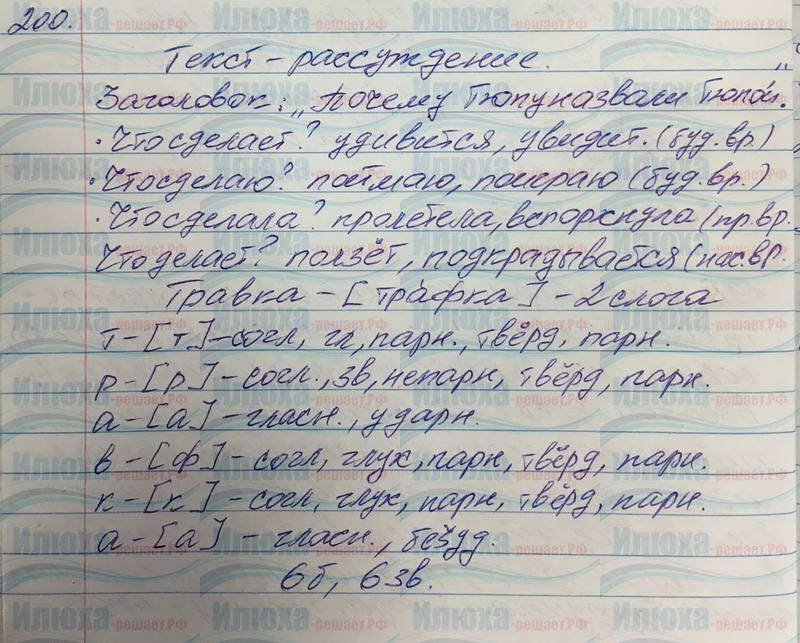 200.
Текст - рассуждение.
Заголовок: „Почему Тюпу назвали Тюпой."
· Что сделает? удивится, увидит. (буд. вр.)
· Что сделаю? поймаю, поиграю (буд. вр.)
· Что сделала? пролетела, вспорхнула (пр. вр.
Что делает? ползёт, подкрадывается (нас. вр.
Травка - [трафка] - 2 слога
т - [т] - согл, гл, парн., твёрд, парн.
р - [р] - согл., зв, непарн, твёрд, парн.
а - [а] - гласн., ударн.
в - [ф] - согл, глух, парн, твёрд, парн.
к - [к] - согл, глух, парн, твёрд, парн.
а - [а] - гласн., безуд.
6б, 6зв.
Илюха-решает.РФ